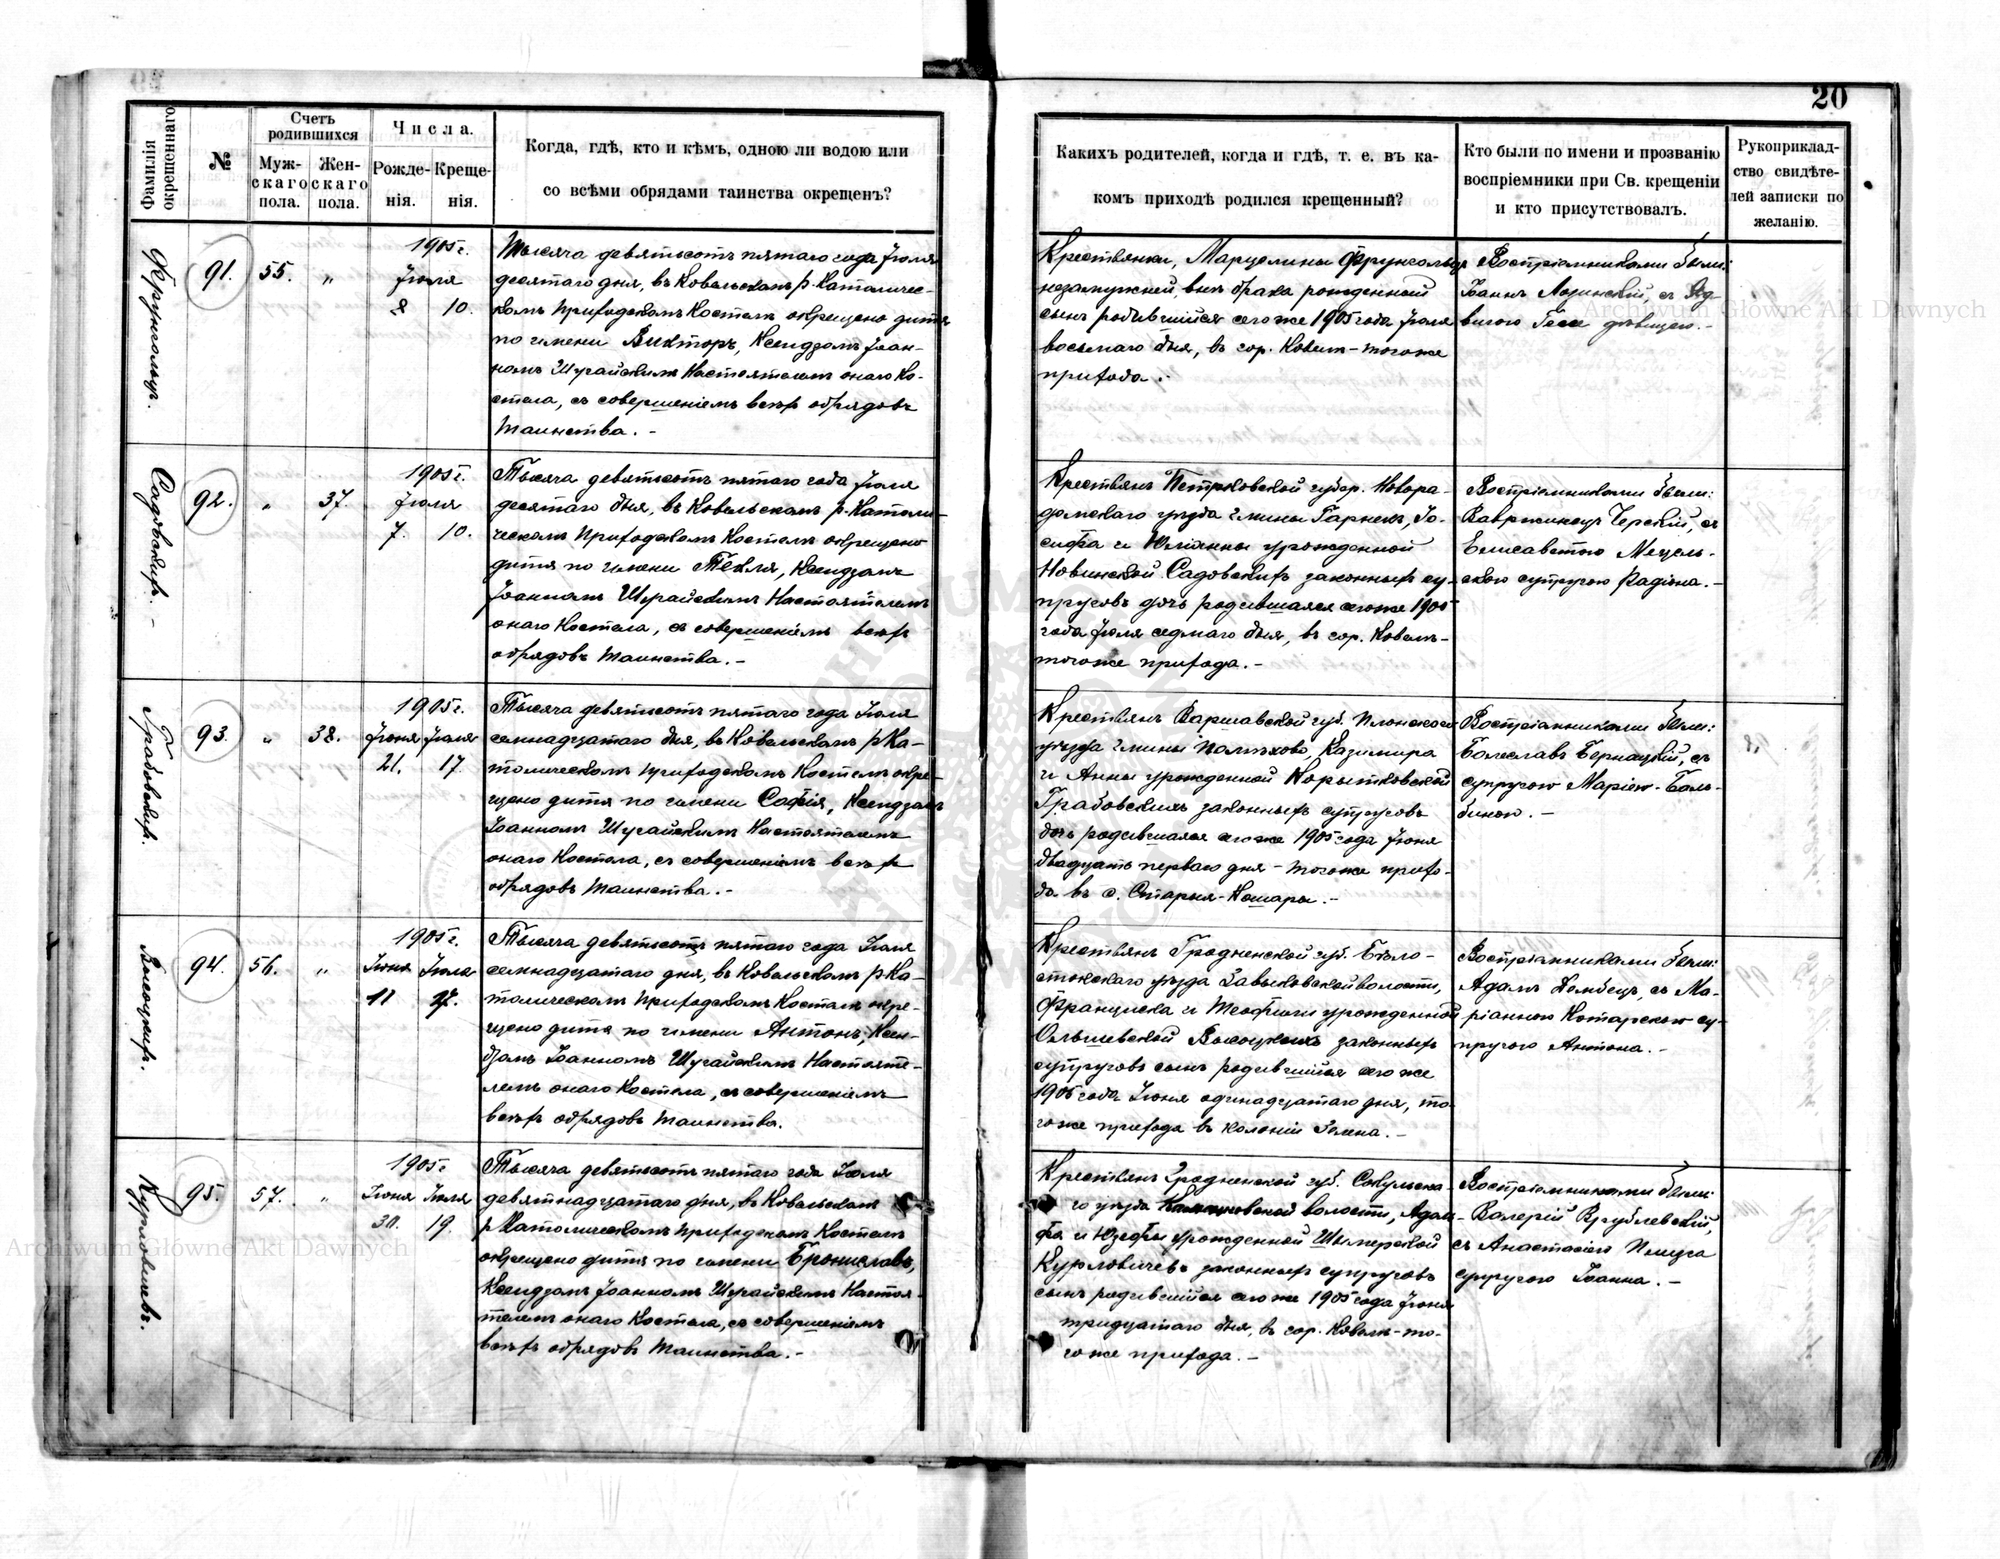 20
Фамилія окрещеннаго.
№
Счетъ родившихся
Мужскаго пола.
Женскаго пола.
Числа.
Рожденія.
Крещенія.
Когда, гдѣ, кто и кѣмъ, одною ли водою или
со всѣми обрядами таинства окрещенъ?
Какихъ родителей, когда и гдѣ, т. е. въ ка-
комъ приходѣ родился крещенный?
Кто были по имени и прозванію
воспріемники при Св. крещеніи
и кто присутствовалъ.
Рукоприклад-
ство свидѣте-
лей записки по
желанію.
91.
55.
„
1905 г.
Іюля
8 10.
Тысяча девятьсотъ пятаго года Іюля
десятаго дня, въ Ковельскомъ р.-Католичес-
комъ приходскомъ Костелѣ окрещено дитя
по имени Викторъ, Ксендзомъ Іоан-
номъ Шурайскимъ Настоятелемъ онаго Ко-
стела, съ совершеніемъ всѣхъ обрядовъ
Таинства. –
Крестьянки, Марцелины
незамужней, внѣ брака рожденный
сынъ родившійся сего же 1905 года Іюля
восьмаго дня, въ гор. Ковелѣ – тогоже
прихода. –
Воспріемниками были:
Іоаннъ Лозинскій, съ Яд-
вигою дѣвицею. –
Садовскихъ. –
92.
„
37.
1905 г.
Іюля
7. 10.
Тысяча девятьсотъ пятаго года Іюля
десятаго дня, въ Ковельскомъ р.-Католи-
ческомъ приходскомъ Костелѣ окрещено
дитя по имени Текля, Ксендзомъ
Іоанномъ Шурайскимъ Настоятелемъ
онаго Костела, съ совершеніемъ всѣхъ
обрядовъ Таинства. –
Крестьянъ Петроковской губер. Новора-
домскаго уѣзда гмины Гарнекъ, Іо-
сифа и Юліанны урожденной
Новинской Садовскихъ законныхъ су-
пруговъ дочь родившаяся сего же 1905
года Іюля седмаго дня, въ гор. Ковелѣ –
тогоже прихода. –
Воспріемниками были:
Вавржинецъ Черскій, съ
Елисаветою
супругою –
Грабовскихъ.
93.
„
38.
1905 г.
Іюня Іюля
21. 17.
Тысяча девятьсотъ пятаго года Іюля
семнадцатаго дня, въ Ковельскомъ р.-Ка-
толическомъ приходскомъ Костелѣ окре-
щено дитя по имени Софія, Ксендзомъ
Іоанномъ Шурайскимъ Настоятелемъ
онаго Костела, съ совершеніемъ всѣхъ
обрядовъ Таинства. –
Крестьянъ Варшавской губ. Плонскаго
уѣзда гмины Казимира
и Анны урожденной Корытковской
Грабовскихъ законныхъ супруговъ
дочь родившаяся сего же 1905 года Іюня
двадцать перваго дня – тогоже прихо-
да въ с. Старыя-Кошары. –
Воспріемниками были:
Болеславъ Бернацкій, съ
супругою Маріею
Высоцкихъ.
94.
56.
„
1905 г.
Іюня Іюля
11 17.
Тысяча девятьсотъ пятаго года Іюля
семнадцатаго дня, въ Ковельскомъ р.-Ка-
толическомъ приходскомъ Костелѣ окре-
щено дитя по имени Антонъ, Ксен-
дзомъ Іоанномъ Шурайскимъ Настояте-
лемъ онаго Костела, съ совершеніемъ
всѣхъ обрядовъ Таинства.
Крестьянъ Гродненской губ. Бѣло-
стокскаго уѣзда Завыковской волости,
Франциска и Теофили урожденной
Ольшевской Высоцкихъ законныхъ
супруговъ сынъ родившійся сего же
1905 года Іюня одинадцатаго дня, то-
гоже прихода въ колоніи –
Воспріемниками были:
Адамъ Домбецъ, съ Ма-
ріанною су-
пругою Антона. –
Курловичевъ.
95.
57.
„
1905 г.
Іюня Іюля
30. 19.
Тысяча девятьсотъ пятаго года Іюля
девятнадцатаго дня, въ Ковельскомъ
р.-Католическомъ приходскомъ Костелѣ
окрещено дитя по имени Брониславъ,
Ксендзомъ Іоанномъ Шурайскимъ Настоя-
телемъ онаго Костела, съ совершеніемъ
всѣхъ обрядовъ Таинства. –
Крестьянъ Гродненской губ. Сокульска-
го уѣзда волости,
и Юзефы урожденной
Курловичевъ законныхъ супруговъ
сынъ родившійся сего же 1905 года Іюня
тридцатаго дня, въ гор. Ковелѣ – то-
гоже прихода. –
Воспріемниками были:
Валерій Врублевскій,
съ Анастасіею
супругою Іоанна. –
Archiwum Główne Akt Dawnych
Archiwum Główne Akt Dawnych